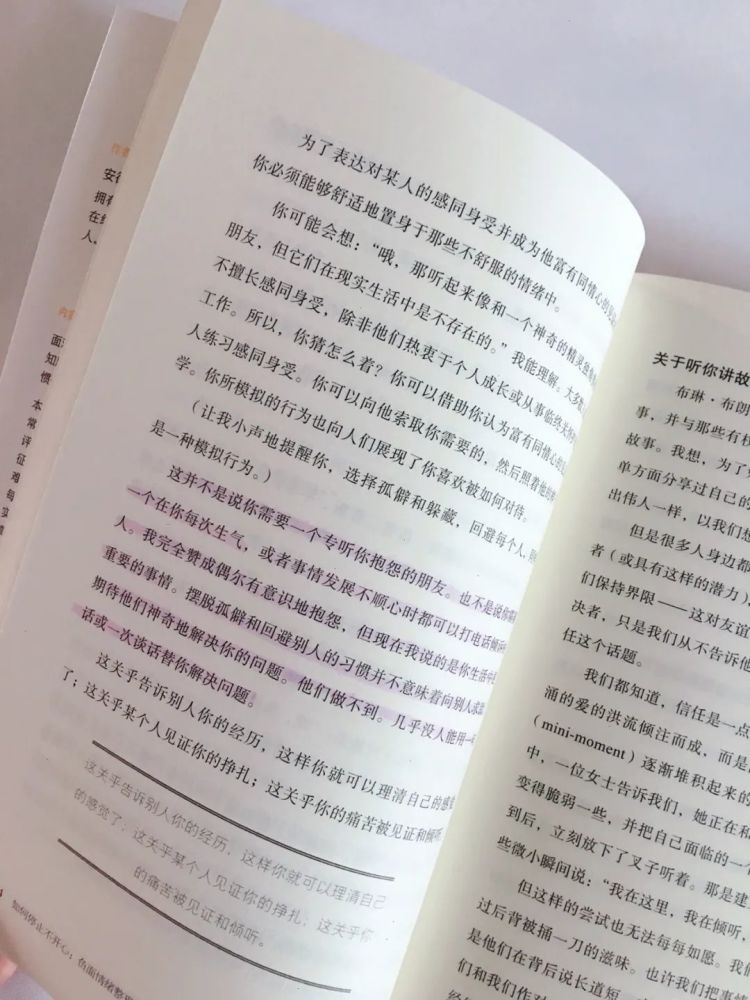 为了表达对某人的感同身受并成为他富有同情心的
你必须能够舒适地置身于那些不舒服的情绪中。
你可能会想：“哦，那听起来像和一个神奇的精灵
朋友，但它们在现实生活中是不存在的。”我能理解。大多数
不擅长感同身受，除非他们热衷于个人成长或从事临终关怀
工作。所以，你猜怎么着？你可以借助你认为富有同情心的
人练习感同身受。你可以向他索取你需要的，然后照着他的
学。你所模拟的行为也向人们展现了你喜欢被如何对待。
（让我小声地提醒你，选择孤僻和躲藏，回避每个人，
是一种模拟行为。）
这并不是说你需要一个专听你抱怨的朋友。也不是说你需
一个在你每次生气，或者事情发展不顺心时都可以打电话倾诉
人。我完全赞成偶尔有意识地抱怨，但现在我说的是你生活中
重要的事情。摆脱孤僻和回避别人的习惯并不意味着向别人求
期待他们神奇地解决你的问题。他们做不到。几乎没人能用一
话或一次谈话替你解决问题。
这关乎告诉别人你的经历，这样你就可以理清自己的感
了；这关乎某个人见证你的挣扎；这关乎你的痛苦被见证和倾听
这关乎告诉别人你的经历，这样你就可以理清自己
的感觉了；这关乎某个人见证你的挣扎；这关乎你
的痛苦被见证和倾听。
如何停止不开心：负面情绪整理
安
拥有
在
人。
面
知
惯
本
常
评
征
难
每
实
关于听你讲故
布琳·布朗
事，并与那些有权
故事。我想，为了
单方面分享过自己的
出伟人一样，以我们想
但是很多人身边都
者（或具有这样的潜力）
们保持界限——这对友谊
决者，只是我们从不告诉他
任这个话题。
我们都知道，信任是一点
涌的爱的洪流倾注而成，而是
（mini-moment）逐渐堆积起来的
中，一位女士告诉我们，她正在和
变得脆弱一些，并把自己面临的一个
到后，立刻放下了叉子听着。那是建
些微小瞬间说：“我在这里，我在倾听，
但这样的尝试也无法每每如愿。我们
过后背被捅一刀的滋味。也许我们把事
是他们在背后说长道短。
们和我们作对